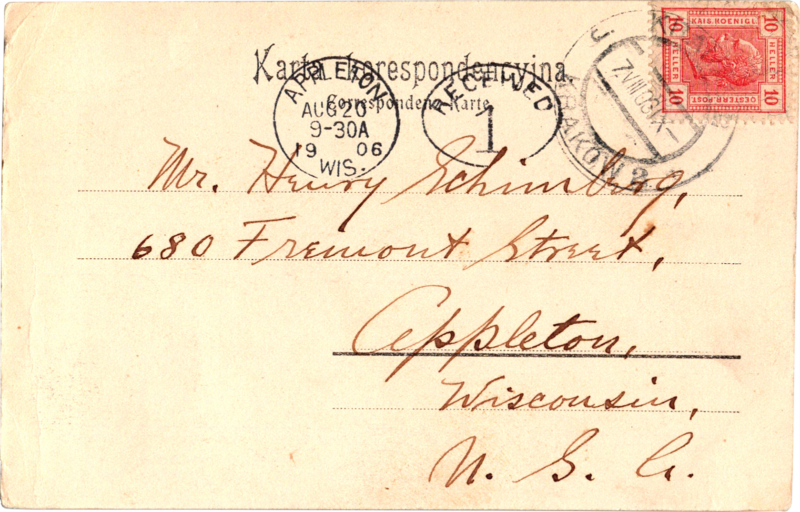 Karta korespondencyjna.
Correspondenz-Karte
APPLETON
AUG 20
9-30A
19 06
WIS.
RECEIVED
1
KRAKÓW 2
7 VIII 06 IX
KAIS. KOENIGL.
10 10
HELLER HELLER
10 10
OESTERR. POST.
Mr. Henry Schimberg,
680 Fremont Street,
Appleton,
Wisconsin,
U. S. A.